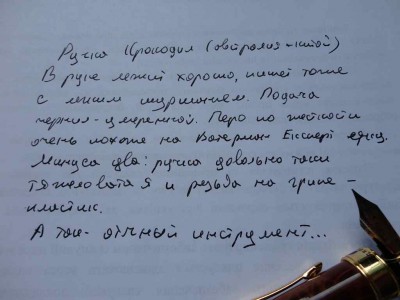 Ручка Крокодил (австралия-китай)
В руке лежит хорошо, пишет тоже
с легким шуршанием. Подача
чернил - умеренной. Перо по жесткости
очень похоже на Ватерман Експерт
Минуса два: ручка довольно таки
тяжеловата я и резьба на грипе -
пластик.
А так - отличный инструмент...